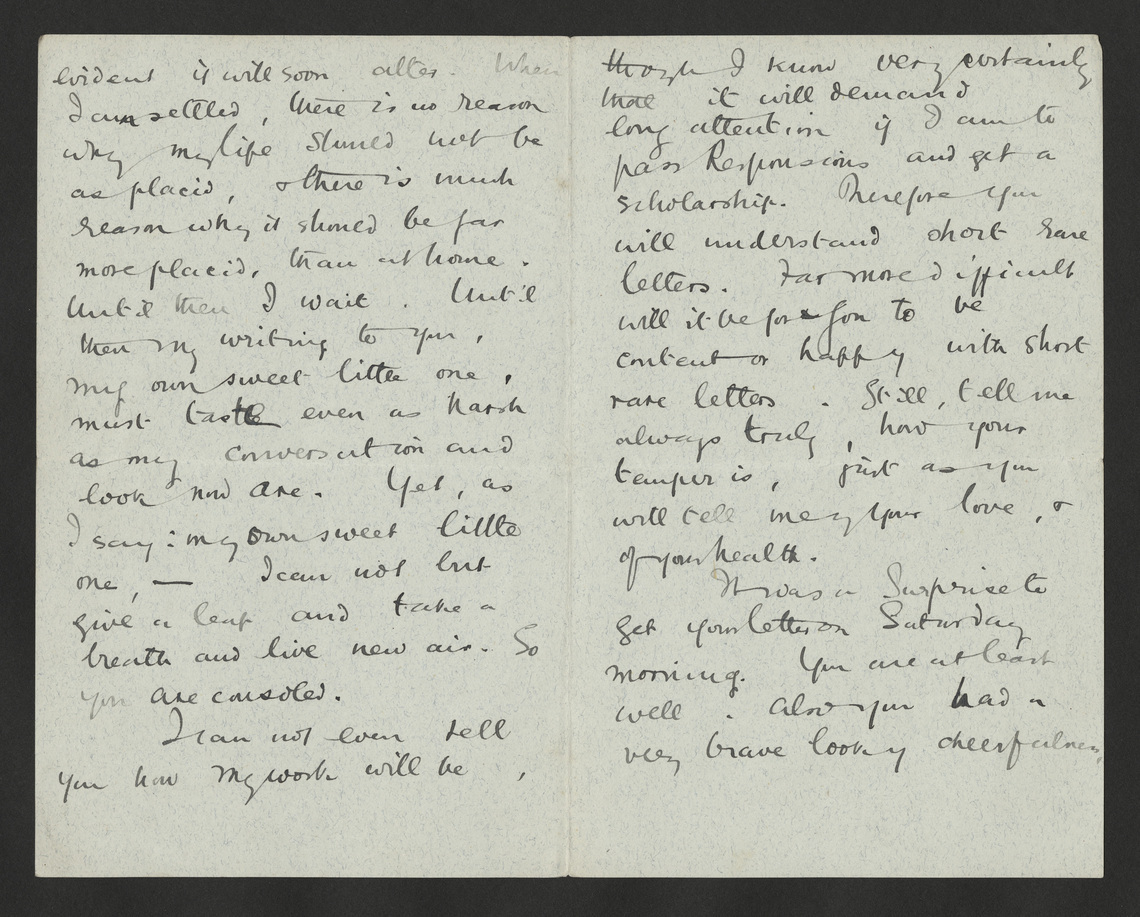 evident it will soon alter. When
I am settled, there is no reason
why my life should not be
as placid, & there is much
reason why it should be far
more placid, than at home.
Until then I wait. Until
then my writing to you,
my own sweet little one,
must taste even as harsh
as my conversation and
look now are. Yet, as
I say: my own sweet little
one, — I can not but
give a leap and take a
breath and live new air. So
you are consoled.
I can not even tell
you how my work will be,
though I know very certainly
that it will demand
long attention if I am to
pass Responsions and get a
scholarship. Therefore you
will understand short rare
letters. Far more difficult
will it be for you to be
content or happy with short
rare letters. Still, tell me
always truly, how your
temper is, just as you
will tell me of your love, &
of your health.
It was a surprise to
get your letter on Saturday
morning. You are at least
well. Also you had a
very brave look of cheerfulness,